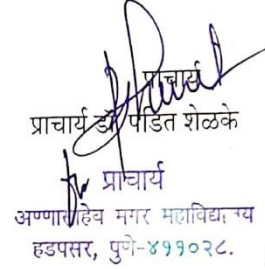 प्राचार्य
प्राचार्य डॉ. पंडित शेळके
for प्राचार्य
अण्णासाहेब मगर महाविद्यालय
हडपसर, पुणे-४११०२८.